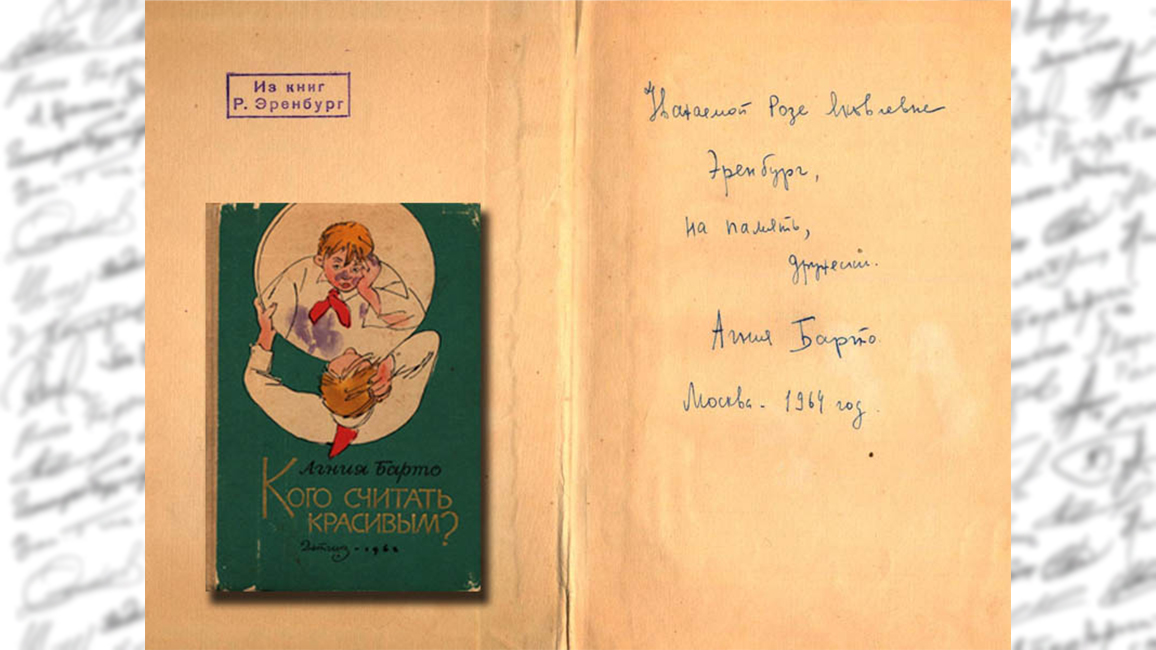 Из книг
Р. Эренбург
Агния Барто
Кого считать
красивым?
Детгиз - 1962
Уважаемой Розе Яковлевне
Эренбург,
на память,
дружески.
Агния Барто.
Москва - 1964 год.